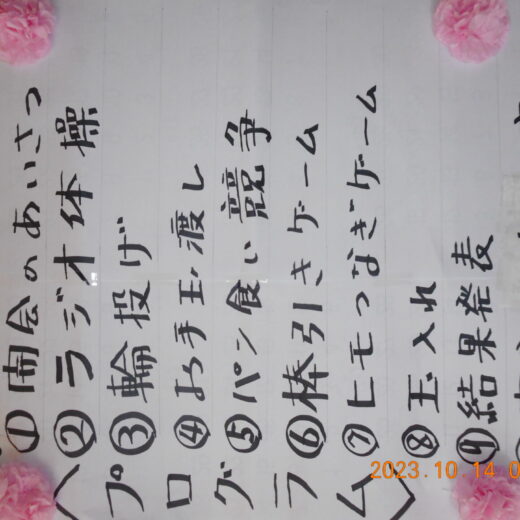 〈プログラム〉
①開会のあいさつ
②ラジオ体操
③輪投げ
④お手玉渡し
⑤パン食い競争
⑥棒引きゲーム
⑦ヒモつなぎゲーム
⑧玉入れ
⑨結果発表
2023.10.14